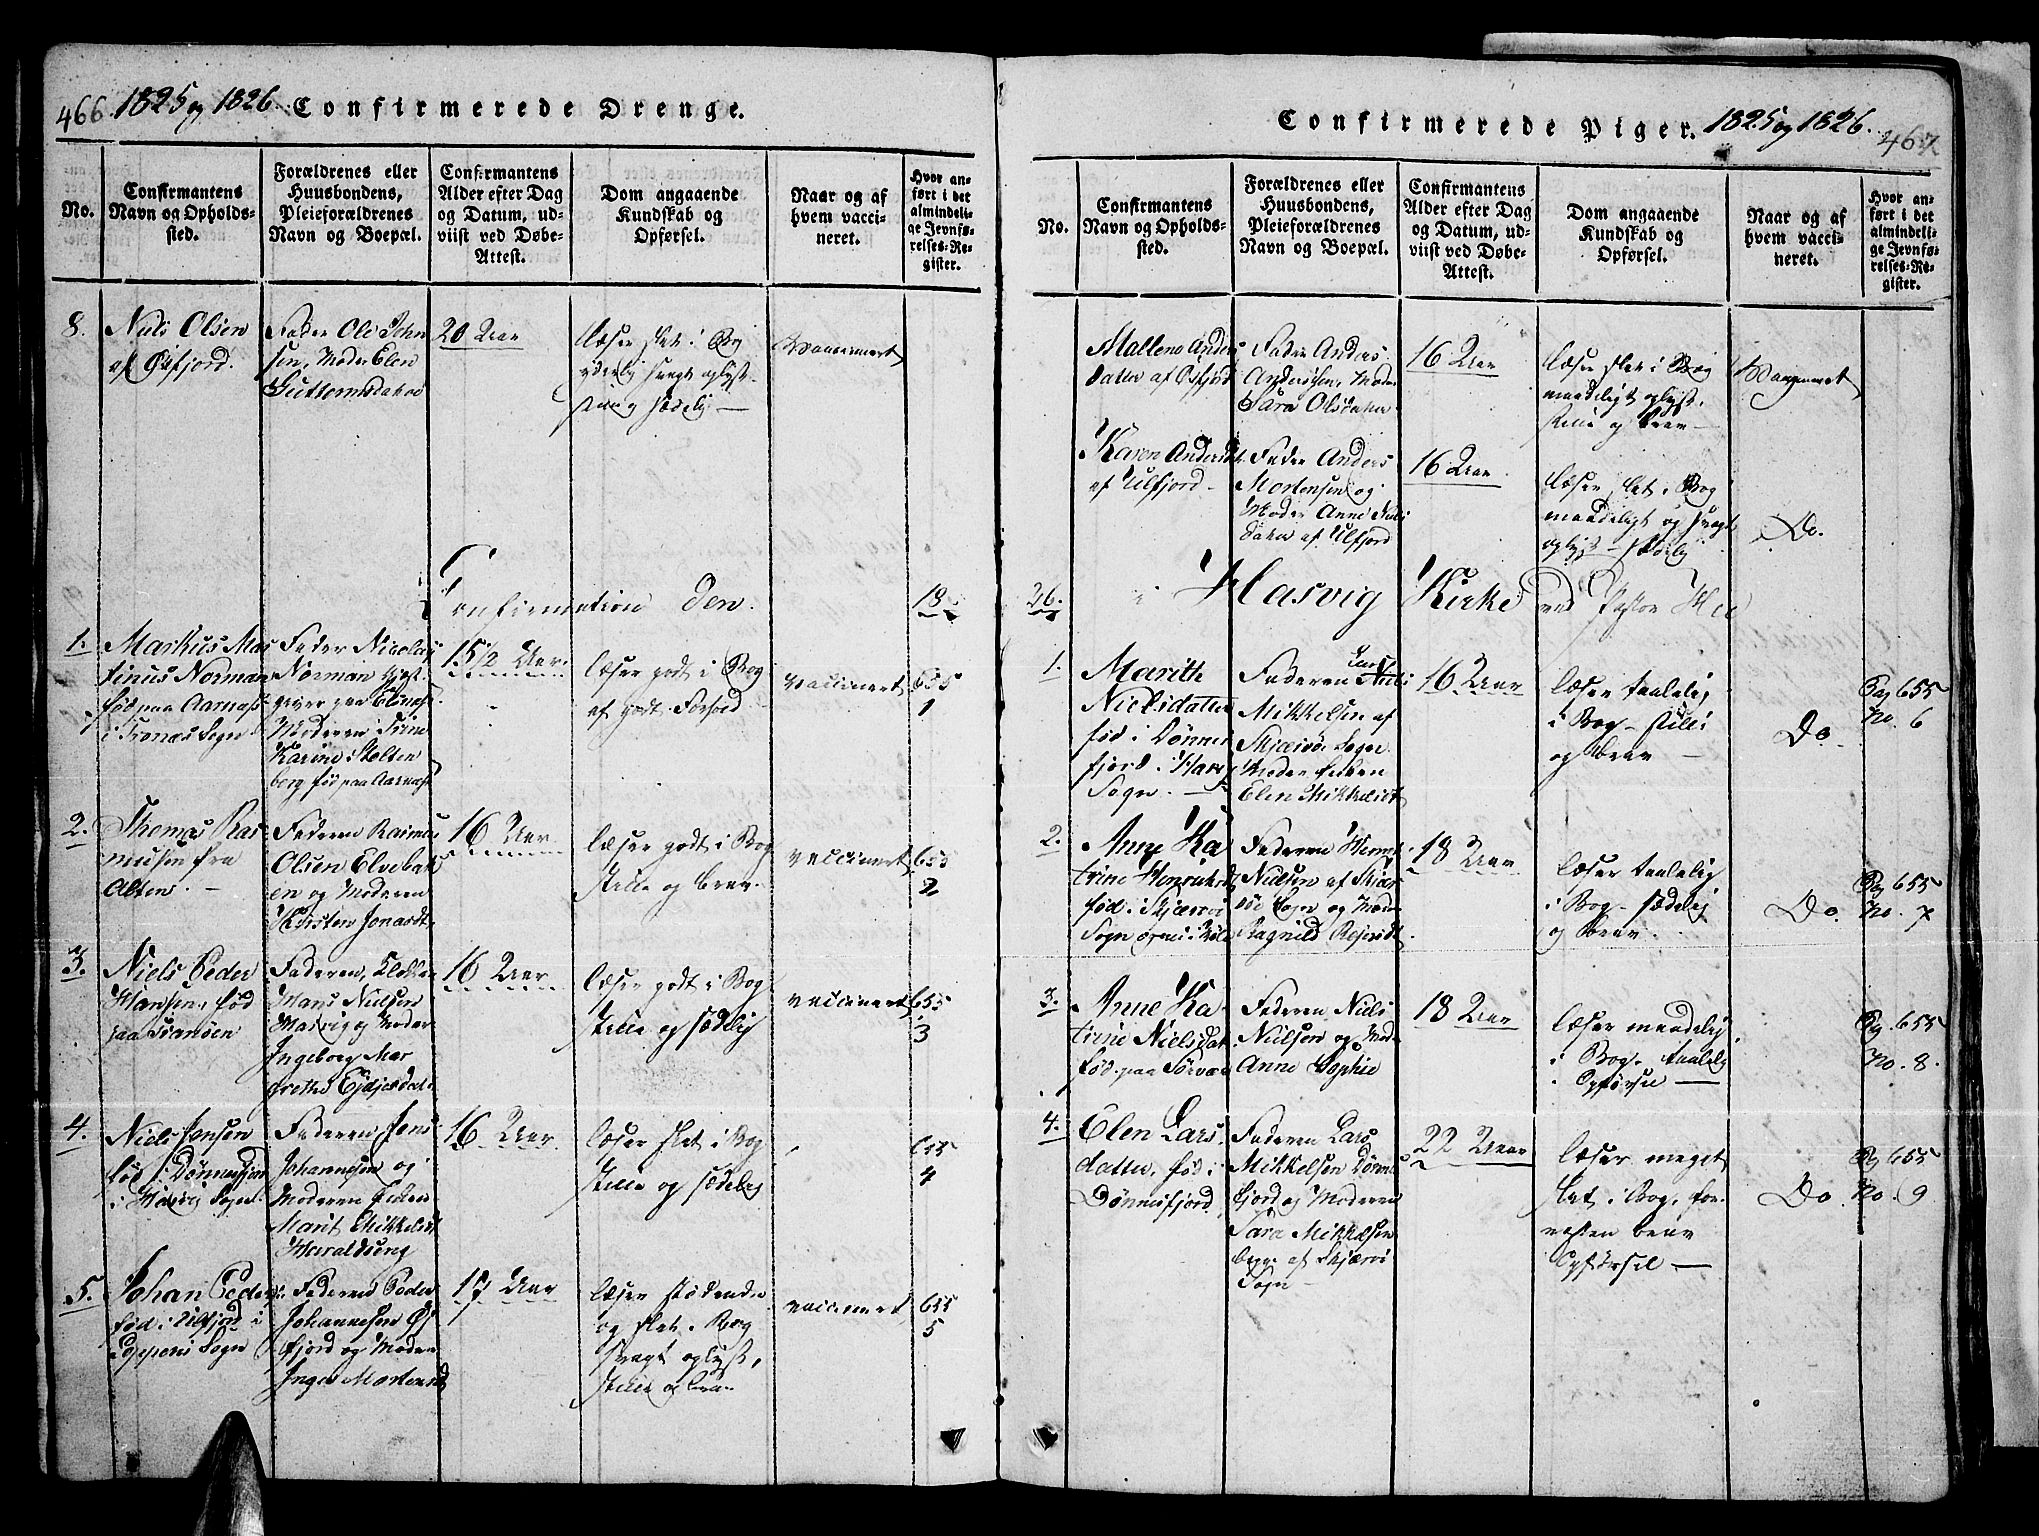 466. 1825 og 1826. Confirmerede Drenge.
No.
Confirmantens
Navn og Opholds-
sted.
Forældrenes eller
Huusbondens,
Pleieforældrenes
Navn og Boepæl.
Confirmantens
Alder efter Dag
og Datum, ud-
viist ved Døbe-
Attest.
Dom angaaende
Kundskab og
Opførsel.
Naar og af
hvem vacci-
neret.
Hvor an-
ført i det
almindeli-
ge Jevnfø-
relses-Re-
gister.
8.
Niels Olsen
af Øxfjord.
Fader Ole John
sen, Moder Elen
Guttormsdatter
20 Aar
læser slet i Bog
yderlig svagt oplyst.
stille og sædelig —
Vaccineret
Confirmation den
18
1.
Markus Mar
tinus Norman
fød paa Aarnæs
i Tronæs Sogn
Fader Nicolay
Norman
giver paa
Moderen Trine
Karine Stolten
berg fød paa Aarnæs
15 1/2 Aar.
læser godt i Bog
af godt Forhold
vaccineret
655
1
2.
Thomas Ras
musen fra
Alten. —
Faderen Rasmus
Olsen Elvebak
en og Moderen
Kirsten Jonasdt.
16 Aar
læser godt i Bog
stille og brav.
vaccineret
655
2
3.
Niels Peder
Hansen, fød
paa
Faderen, Klokker
Hans Nielsen
Hasvig og Moder
Ingeborg Mar
grethe
16 Aar
læser godt i Bog
stille og sædelig
vaccineret
655
3
4.
Niels Jensen
fød i Dønnesfjord
i Hasvig Sogn
Faderen Jens
Johannesen og
Moderen Finken
Marit Mikkelsdt
16 Aar.
læser slet i Bog
stille og sædelig
655
4
5.
Johan Peders.
fød i Ulfjord i
Loppens Sogn
Faderen Peder
Johannesen Øx
fjord og Moder
Inger Mortensd
17 Aar
læser stødende
og slet i Bog
svagt oplyst,
stille og brav
vaccineret
655
5
Confirmerede Piger. 1825 og 1826. 467
No.
Confirmantens
Navn og Opholds-
sted.
Forældrenes eller
Huusbondens,
Pleieforældrenes
Navn og Boepæl.
Confirmantens
Alder efter Dag
og Datum, ud-
viist ved Døbe-
Attest.
Dom angaaende
Kundskab og
Opførsel.
Naar og af
hvem vacci-
neret.
Hvor an-
ført i det
almindeli-
ge Jevnfø-
relses-Re-
gister.
Mallena Anders
datter af Øxfjord
Fader Anders
Andersen, Moder
Sara Olsdatter
16 Aar
læser slet i Bog
maadeligt oplyst.
stille og brav —
Vaccineret
Karen Andersdt.
af Ulfjord —
Fader Anders
Mortensen og
Moder Anne Niels
datter af Ulfjord
16 Aar
læser slet i Bog
maadeligt og svagt
oplyst — sædelig
Do.
26. i Hasvig Kirke ved Pastor
1.
Marith
Nielsdatter
fød i Dønnes
fjord i Hasvig
Sogn. —
Faderen Niels
Mikkelsen af
Skjærvø Sogn
Moder Finken
Elen Mikkelsdt
16 Aar
læser taalelig
i Bog — stille
og brav —
Do.
Pag 655
No. 6
2.
Anne Ka
trine Henrichsdt
fød i Skjærvø
Sogn
Faderen Henrik
Nielsen af Skjær
vøe Sogn og Moder
Ragnild
18 Aar
læser taalelig
i Bog — sædelig
og brav.
Do.
Pag 655
No. 7
3.
Anne Ka
trine Nielsdat
fød paa Sørvær
Faderen Niels
Nielsen og Mod
Anne Sophie
18 Aar
læser maadelig
i Bog — taalelig
Opførsel —
Pg. 655
No. 8.
4.
Elen Lars
datter, fød i
Dønnesfjord.
Faderen Lars
Mikkelsen Dønnes
fjord og Moderen
Sara Mikkelsen
begge af Skjærvø
Sogn —
22 Aar
læser meget
slet i Bog, for
resten brav
Opførsel —
Do
Pg 655
No. 9